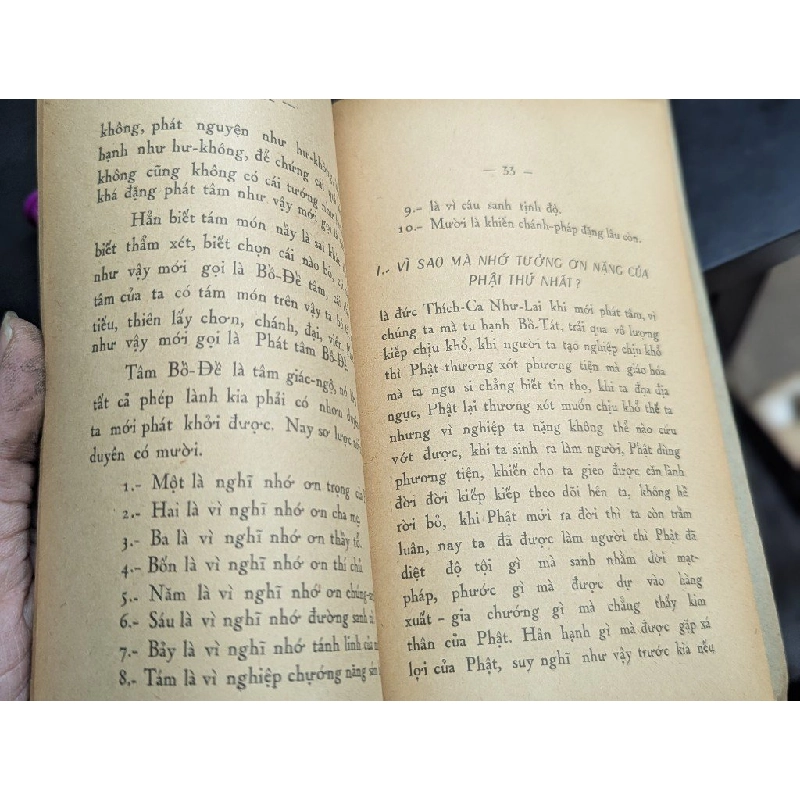 không, phát nguyện như hư-không,
hạnh như hư-không, để chứng
không cũng không có cái tướng
khá đặng phát tâm như vậy mới gọi
Hẳn biết tám món nầy là sai
biết thẩm xét, biết chọn cái nào
như vậy mới gọi là Bồ-Đề tâm,
tâm của ta có tám món trên vậy ta
tiểu, thiên lấy chơn, chánh, đại, viên.
như vậy mới gọi là Phát tâm Bồ-Đề
Tâm Bồ-Đề là tâm giác-ngộ, nó
tất cả phép lành kia phải có nhơn
ta mới phát khởi được. Nay sơ lược
duyên có mười.
1.- Một là nghĩ nhớ ơn trọng của
2.- Hai là vì nghĩ nhớ ơn cha mẹ
3.- Ba là vì nghĩ nhớ ơn thầy tổ.
4.- Bốn là vì nghĩ nhớ ơn thí chủ
5.- Năm là vì nghĩ nhớ ơn chúng-
6.- Sáu là vì nghĩ nhớ đường sanh
7.- Bảy là vì nghĩ nhớ tánh linh của
8.- Tám là vì nghiệp chướng nặng
— 33 —
9.- là vì cầu sanh tịnh độ.
10.- Mười là khiến chánh-pháp đặng lâu còn.
1.- VÌ SAO MÀ NHỚ TƯỞNG ƠN NẶNG CỦA
PHẬT THỨ NHẤT ?
là đức Thích-Ca Như-Lai khi mới phát tâm, vì
chúng ta mà tu hạnh Bồ-Tát, trải qua vô lượng
kiếp chịu khổ, khi người ta tạo nghiệp chịu khổ
thì Phật thương xót phương tiện mà giáo hóa
mà ta ngu si chẳng biết tin thọ, khi ta đọa địa
ngục, Phật lại thương xót muốn chịu khổ thế ta
nhưng vì nghiệp ta nặng không thể nào cứu
vớt được, khi ta sinh ra làm người, Phật dùng
phương tiện, khiến cho ta gieo được căn lành
đời đời kiếp kiếp theo dõi bên ta, không hề
rời bỏ, khi Phật mới ra đời thì ta còn trầm
luân, nay ta đã được làm người thì Phật đã
diệt độ tội gì mà sanh nhằm đời mạt-
pháp, phước gì mà được dự vào hàng
xuất - gia chướng gì mà chẳng thấy kim
thân của Phật. Hân hạnh gì mà được gặp xá
lợi của Phật, suy nghĩ như vậy trước kia nếu